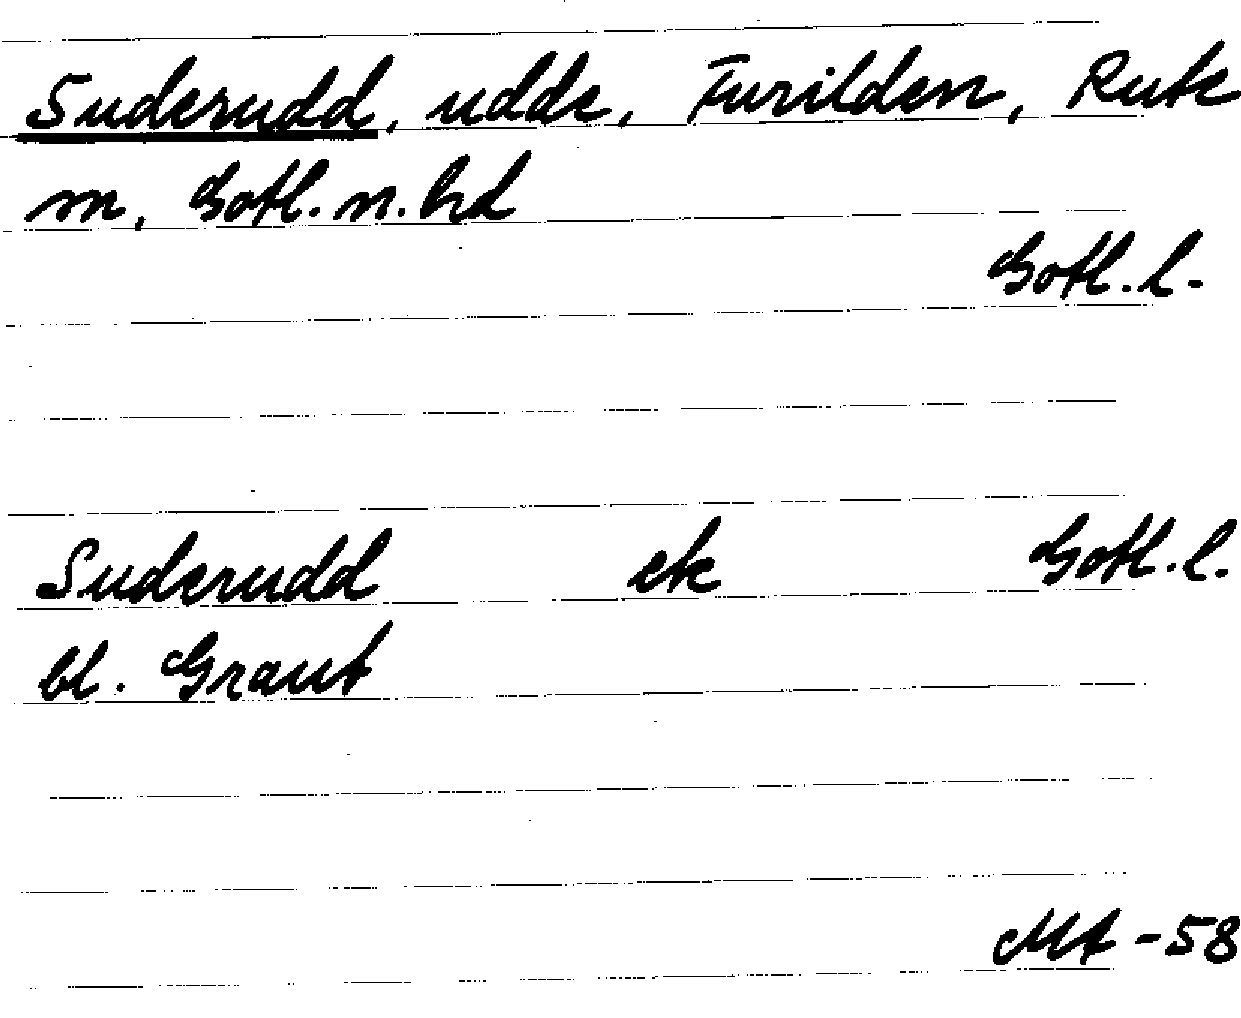 Suderudd, udde, Furilden, Rute
m, Gotl. n. hd
Gotl. l.
Suderudd ek Gotl. l.
bl. Graut
MA -58